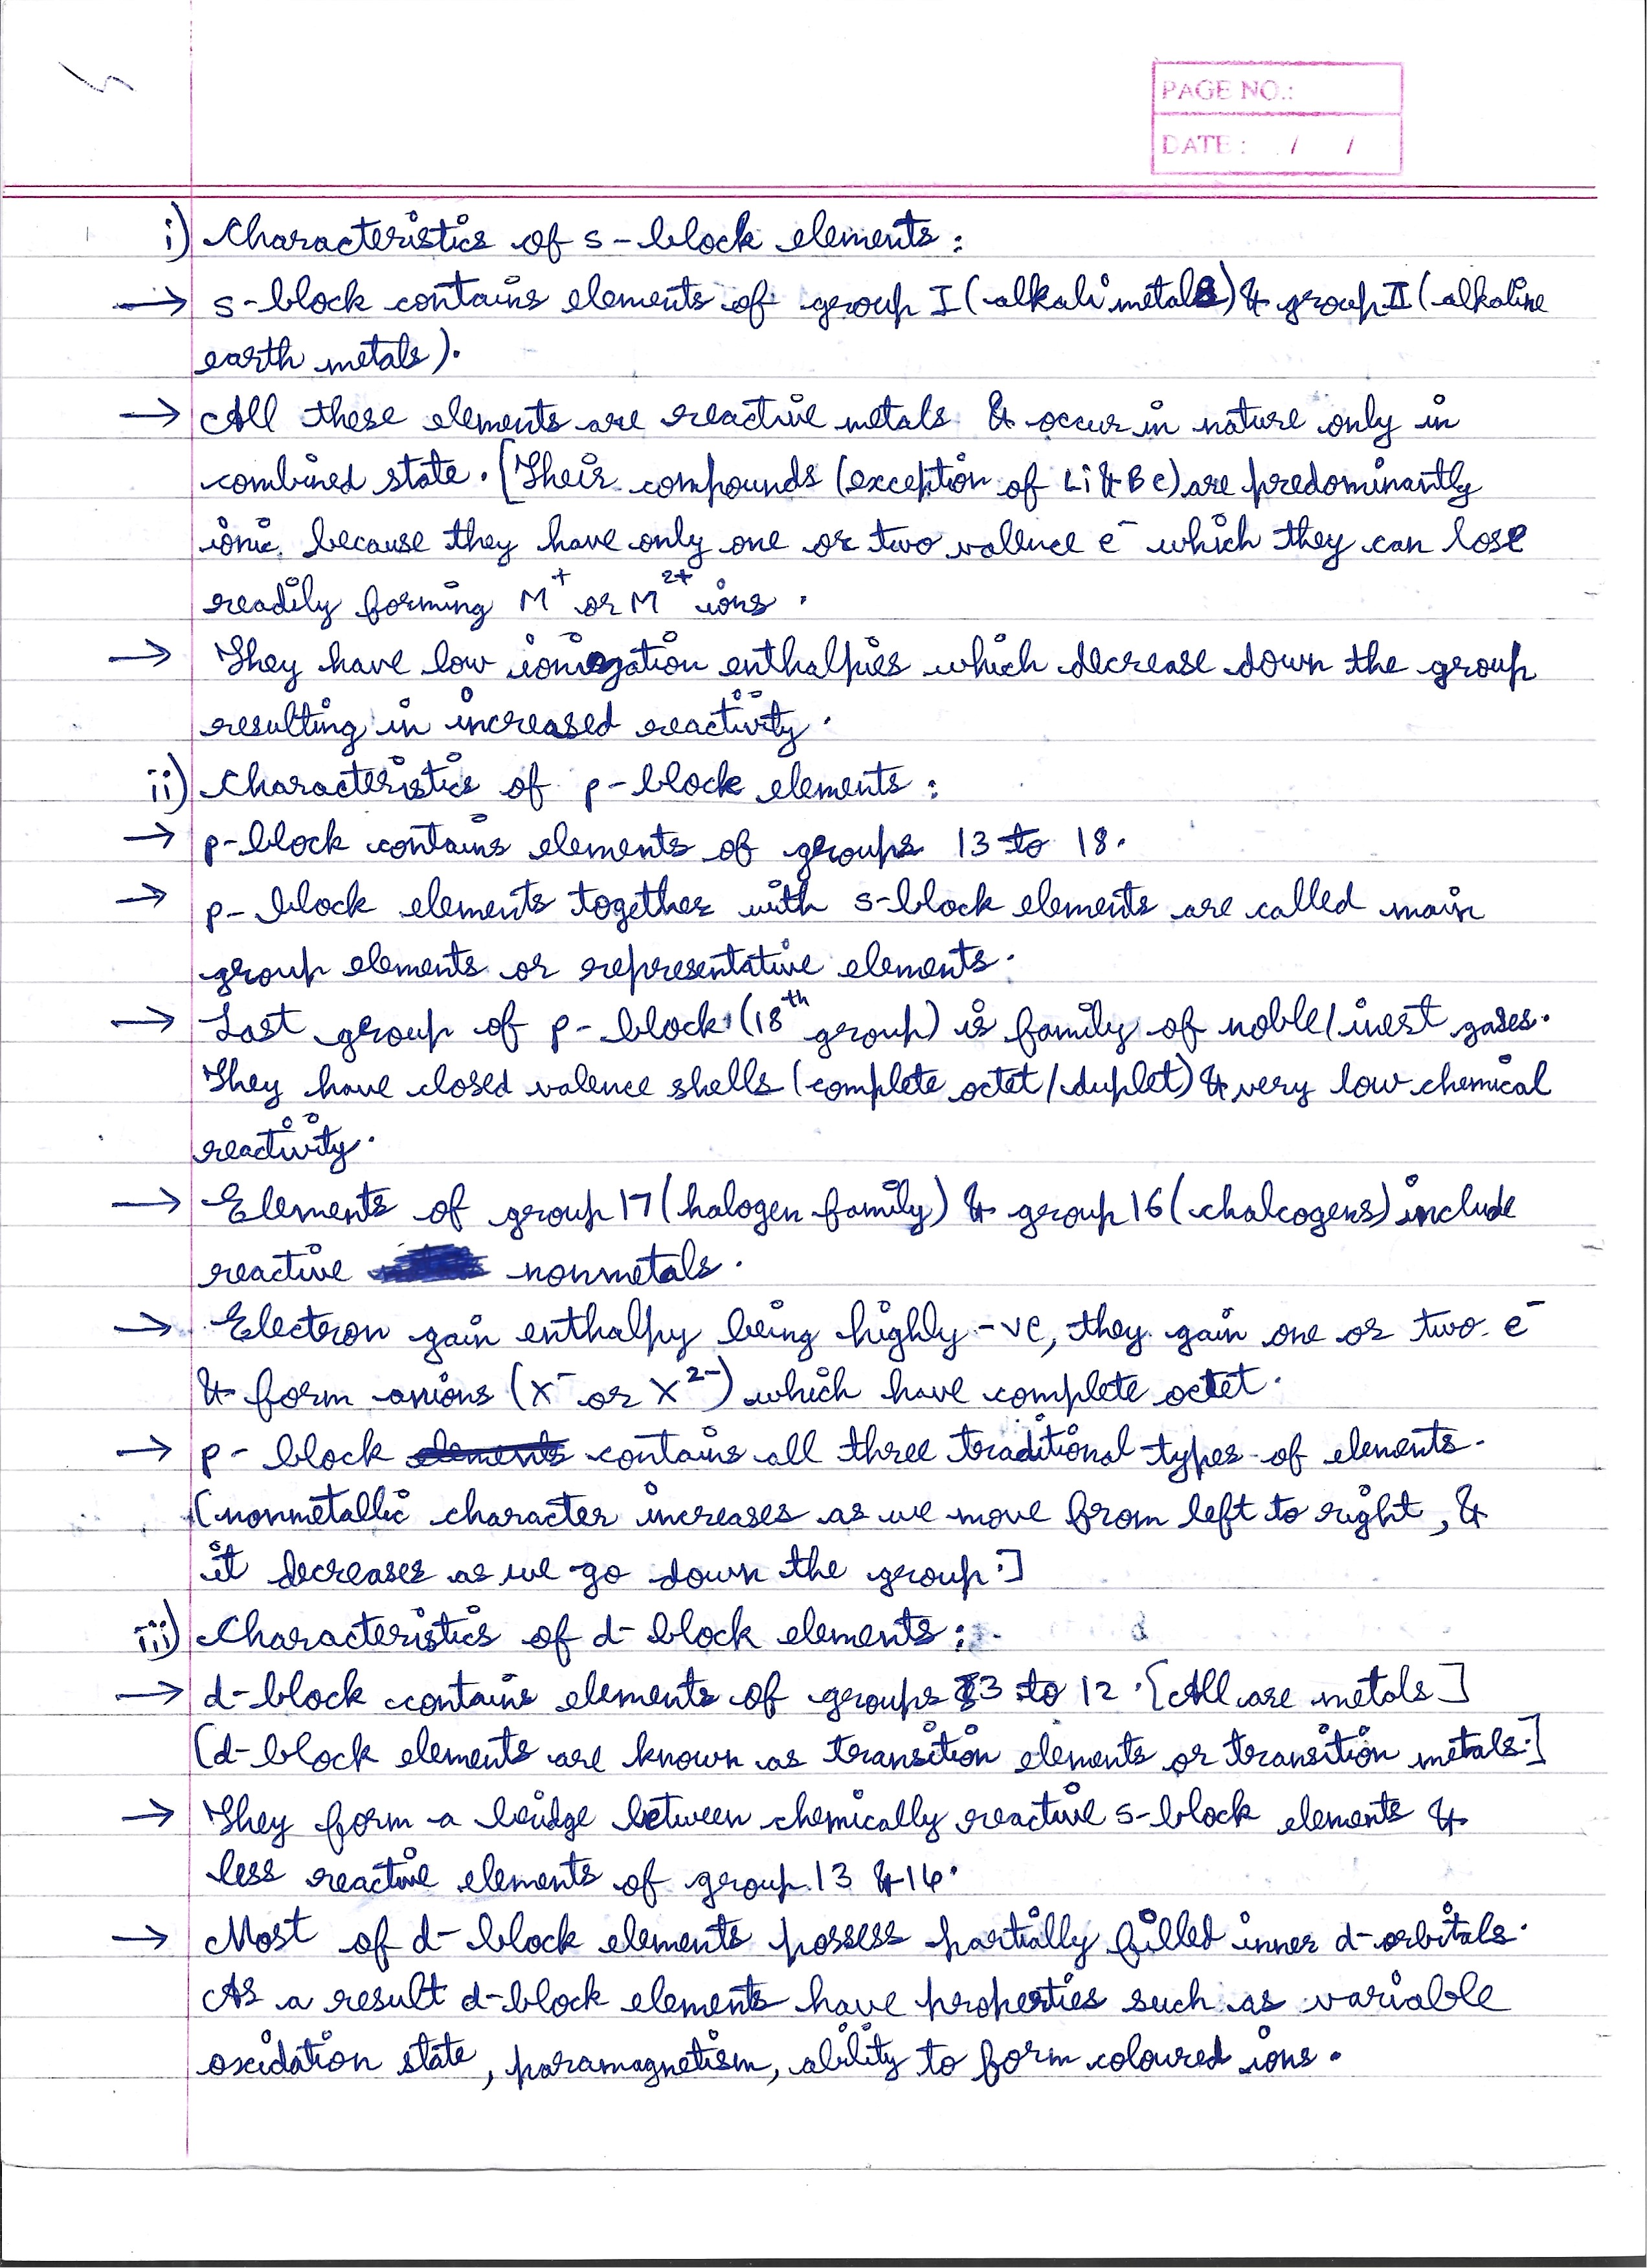 PAGE NO.:
DATE : / /
i) Characteristics of s-block elements :
→ s-block contains elements of group I (alkali metals) & group II (alkaline
earth metals).
→ All these elements are reactive metals & occur in nature only in
combined state. [Their compounds (exception of Li & Be) are predominantly
ionic because they have only one or two valence e⁻ which they can lose
readily forming M⁺ or M²⁺ ions.
→ They have low ionization enthalpies which decrease down the group
resulting in increased reactivity.
ii) Characteristics of p-block elements :
→ p-block contains elements of groups 13 to 18.
→ p-block elements together with s-block elements are called main
group elements or representative elements.
→ Last group of p-block (18th group) is family of noble/inert gases.
They have closed valence shells (complete octet/duplet) & very low chemical
reactivity.
→ Elements of group 17 (halogen family) & group 16 (chalcogens) include
reactive nonmetals.
→ Electron gain enthalpy being highly -ve, they gain one or two e⁻
& form anions (X⁻ or X²⁻) which have complete octet.
→ p-block elements contains all three traditional types of elements.
[nonmetallic character increases as we move from left to right, &
it decreases as we go down the group.]
iii) Characteristics of d-block elements :
→ d-block contains elements of groups 3 to 12. [All are metals]
[d-block elements are known as transition elements or transition metals.]
→ They form a bridge between chemically reactive s-block elements &
less reactive elements of group 13 & 14.
→ Most of d-block elements possess partially filled inner d-orbitals.
As a result d-block elements have properties such as variable
oxidation state, paramagnetism, ability to form coloured ions.